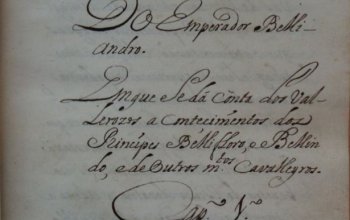 Do Emperador Belli-
andro.
Em que Se dá Conta dos Val-
lerozos acontecimentos doz
Principes Bellifloro, e Bellin-
do, e de Outros m.tos Cavalleyros.
Cap.o 1.o